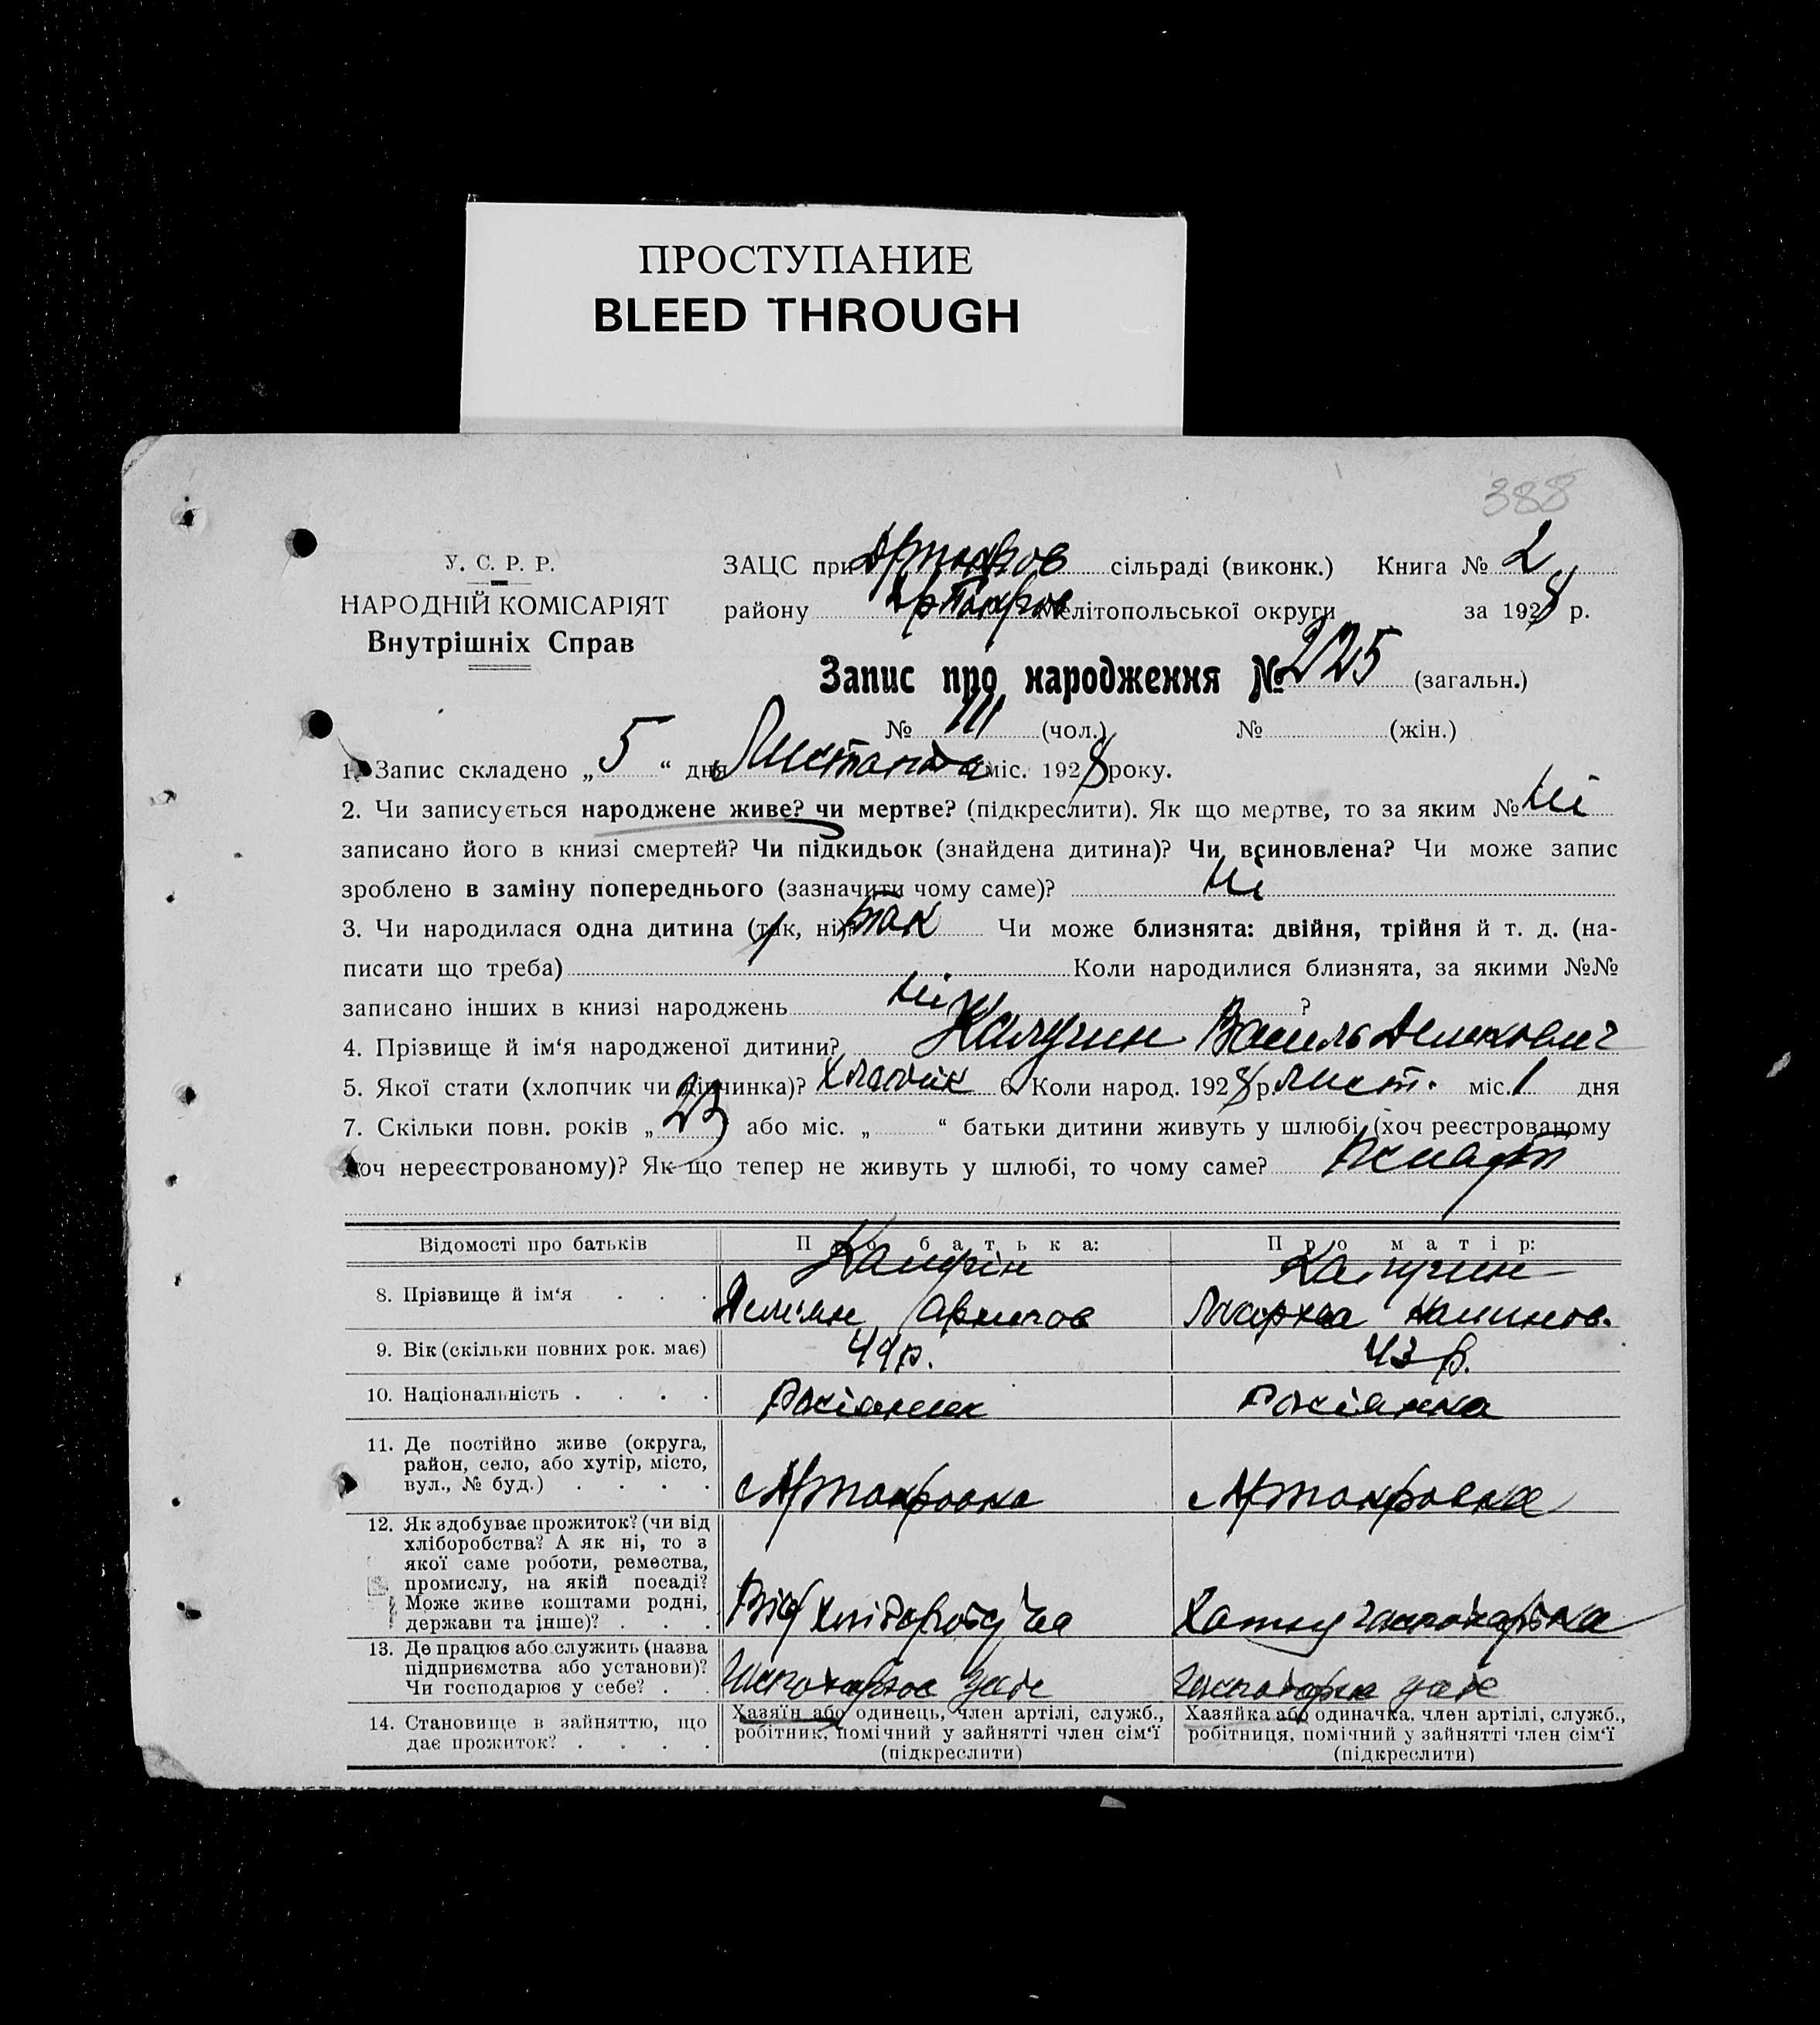 ПРОСТУПАНИЕ
BLEED THROUGH
388
У. С. Р. Р.
НАРОДНІЙ КОМІСАРІЯТ
Внутрішніх Справ
ЗАЦС при сільраді (виконк.) Книга № 2
району Мелітопольської округи за 1928 р.
Запис про народження № 225 (загальн.)
№ 111 (чол.) № (жін.)
1. Запис складено „ 5 “ дня Листопада міс. 1928 року.
2. Чи записується народжене живе? чи мертве? (підкреслити). Як що мертве, то за яким № ні
записано його в книзі смертей? Чи підкидьок (знайдена дитина)? Чи всиновлена? Чи може запис
зроблено в заміну попереднього (зазначити чому саме)? ні
3. Чи народилася одна дитина (так, ні) так Чи може близнята: двійня, трійня й т. д. (на-
писати що треба) Коли народилися близнята, за якими №№
записано інших в книзі народжень ні ?
4. Прізвище й ім‘я народженої дитини? Калугин Василь
5. Якої стати (хлопчик чи дівчинка)? 6. Коли народ. 1928 р. лист. міс. 1 дня
7. Скільки повн. років „ 23 або міс. „ “ батьки дитини живуть у шлюбі (хоч реєстрованому
хоч нереєстрованому)? Як що тепер не живуть у шлюбі, то чому саме?
Відомості про батьків Про батька: Про матір:
8. Прізвище й ім‘я Калугін Калугин
9. Вік (скільки повних рок. має) 44 р. 43 р.
10. Національність Росіянин Росіянка
11. Де постійно живе (округа,
район, село, або хутір, місто,
вул., № буд.)
12. Як здобуває прожиток? (чи від
хліборобства? А як ні, то з
якої саме роботи, ремества,
промислу, на якій посаді?
Може живе коштами родні,
держави та інше)? Від хліборобства Хатня господарка
13. Де працює або служить (назва
підприємства або установи)?
Чи господарює у себе?
14. Становище в зайняттю, що
дає прожиток?
Хазяїн або одинець, член артілі, служб.,
робітник, помічний у зайнятті член сім‘ї
(підкреслити)
Хазяйка або одиначка, член артілі, служб.,
робітниця, помічний у зайнятті член сім‘ї
(підкреслити)